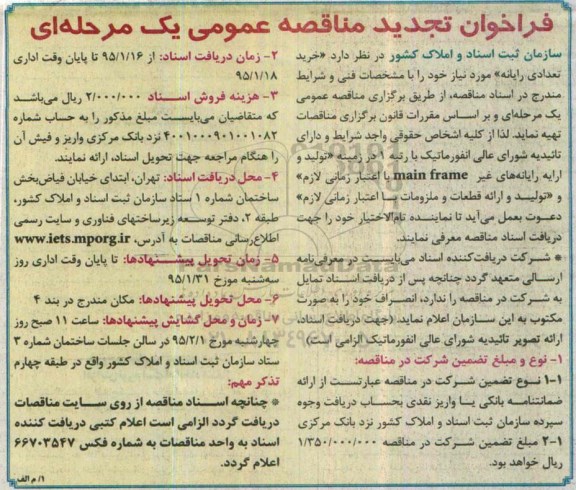 فراخوان تجدید مناقصه عمومی یک مرحله‌ای
سازمان ثبت اسناد و املاک کشور در نظر دارد «خرید
تعدادی رایانه» مورد نیاز خود را با مشخصات فنی و شرایط
مندرج در اسناد مناقصه، از طریق برگزاری مناقصه عمومی
یک مرحله‌ای و بر اساس مقررات قانون برگزاری مناقصات
تهیه نماید. لذا از کلیه اشخاص حقوقی واجد شرایط و دارای
تائیدیه شورای عالی انفورماتیک با رتبه ۱ در زمینه «تولید و
ارایه رایانه‌های غیر main frame با اعتبار زمانی لازم»
و «تولید و ارائه قطعات و ملزومات با اعتبار زمانی لازم»
دعوت بعمل می‌آید تا نماینده تام‌الاختیار خود را جهت
دریافت اسناد مناقصه معرفی نمایند.
* شرکت دریافت‌کننده اسناد می‌بایست در معرفی‌نامه
ارسالی متعهد گردد چنانچه پس از دریافت اسناد تمایل
به شرکت در مناقصه را ندارد، انصراف خود را به صورت
مکتوب به این سازمان اعلام نماید. (جهت دریافت اسناد،
ارائه تصویر تائیدیه شورای عالی انفورماتیک الزامی است)
۱- نوع و مبلغ تضمین شرکت در مناقصه:
۱-۱ نوع تضمین شرکت در مناقصه عبارتست از ارائه
ضمانتنامه بانکی یا واریز نقدی بحساب دریافت وجوه
سپرده سازمان ثبت اسناد و املاک کشور نزد بانک مرکزی
۱-۲ مبلغ تضمین شرکت در مناقصه ۱/۳۵۰/۰۰۰/۰۰۰
ریال خواهد بود.
۲- زمان دریافت اسناد: از ۹۵/۱/۱۶ تا پایان وقت اداری
۹۵/۱/۱۸
۳- هزینه فروش اسناد ۲/۰۰۰/۰۰۰ ریال می‌باشد
که متقاضیان می‌بایست مبلغ مذکور را به حساب شماره
۴۰۰۱۰۰۰۹۰۱۰۰۱۰۸۲ نزد بانک مرکزی واریز و فیش آن
را هنگام مراجعه جهت تحویل اسناد، ارائه نمایند.
۴- محل دریافت اسناد: تهران، ابتدای خیابان فیاض‌بخش
ساختمان شماره ۱ ستاد سازمان ثبت اسناد و املاک کشور،
طبقه ۲، دفتر توسعه زیرساختهای فناوری و سایت رسمی
اطلاع‌رسانی مناقصات به آدرس، www.iets.mporg.ir
۵- زمان تحویل پیشنهادها: تا پایان وقت اداری روز
سه‌شنبه مورخ ۹۵/۱/۳۱
۶- محل تحویل پیشنهادها: مکان مندرج در بند ۴
۷- زمان و محل گشایش پیشنهادها: ساعت ۱۱ صبح روز
چهارشنبه مورخ ۹۵/۲/۱ در سالن جلسات ساختمان شماره ۳
ستاد سازمان ثبت اسناد و املاک کشور واقع در طبقه چهارم
تذکر مهم:
* چنانچه اسناد مناقصه از روی سایت مناقصات
دریافت گردد الزامی است اعلام کتبی دریافت کننده
اسناد به واحد مناقصات به شماره فکس ۶۶۷۰۳۵۴۷
اعلام گردد.
۱/ م الف